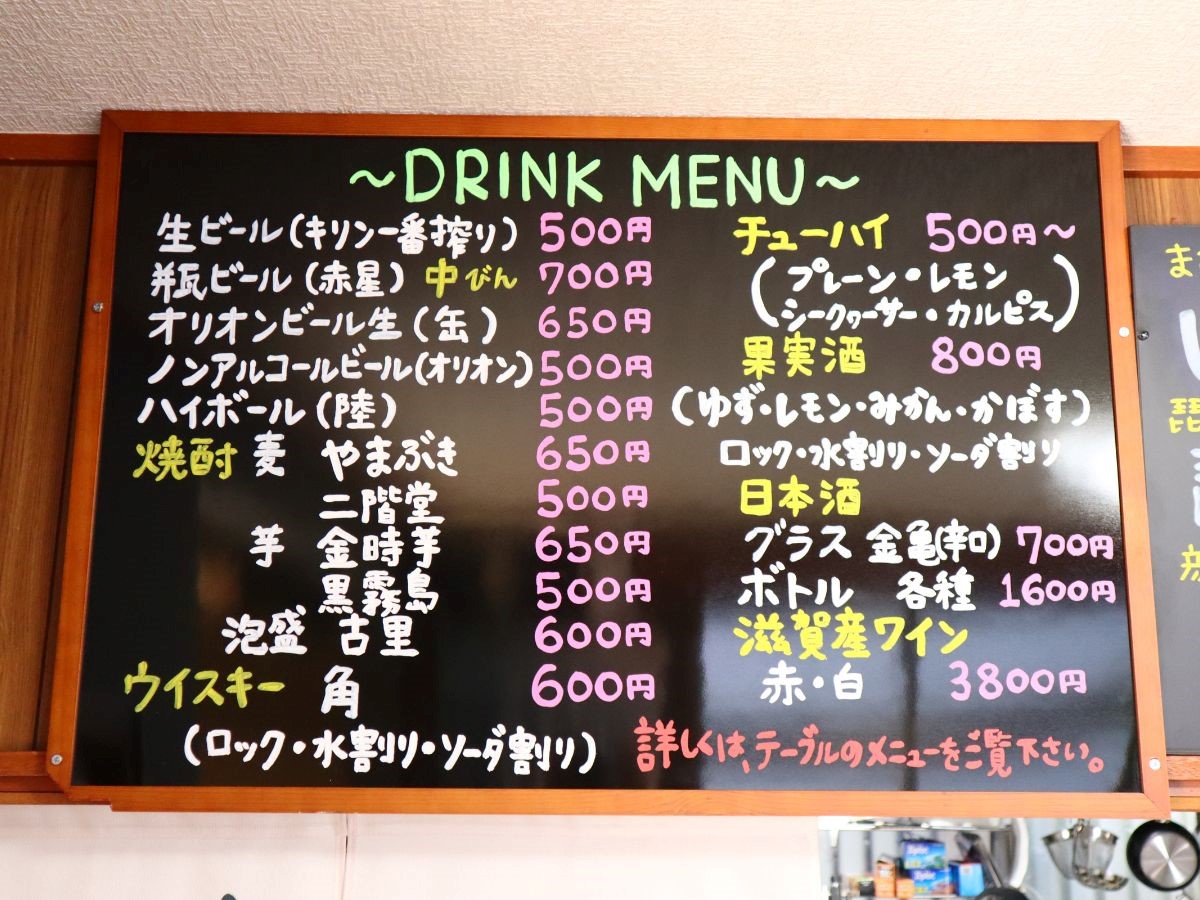 ～DRINK MENU～
生ビール(キリン一番搾り) 500円
瓶ビール(赤星) 中びん 700円
オリオンビール生(缶) 650円
ノンアルコールビール(オリオン) 500円
ハイボール(陸) 500円
焼酎 麦 やまぶき 650円
二階堂 500円
芋 金時芋 650円
黒霧島 500円
泡盛 古里 600円
ウイスキー 角 600円
(ロック・水割り・ソーダ割り)
チューハイ 500円～
(プレーン・レモン
シークヮーサー・カルピス)
果実酒 800円
(ゆず・レモン・みかん・かぼす)
ロック・水割り・ソーダ割り
日本酒
グラス 金亀(辛口) 700円
ボトル 各種 1600円
滋賀産ワイン
赤・白 3800円
詳しくは、テーブルのメニューをご覧下さい。
ま
琵